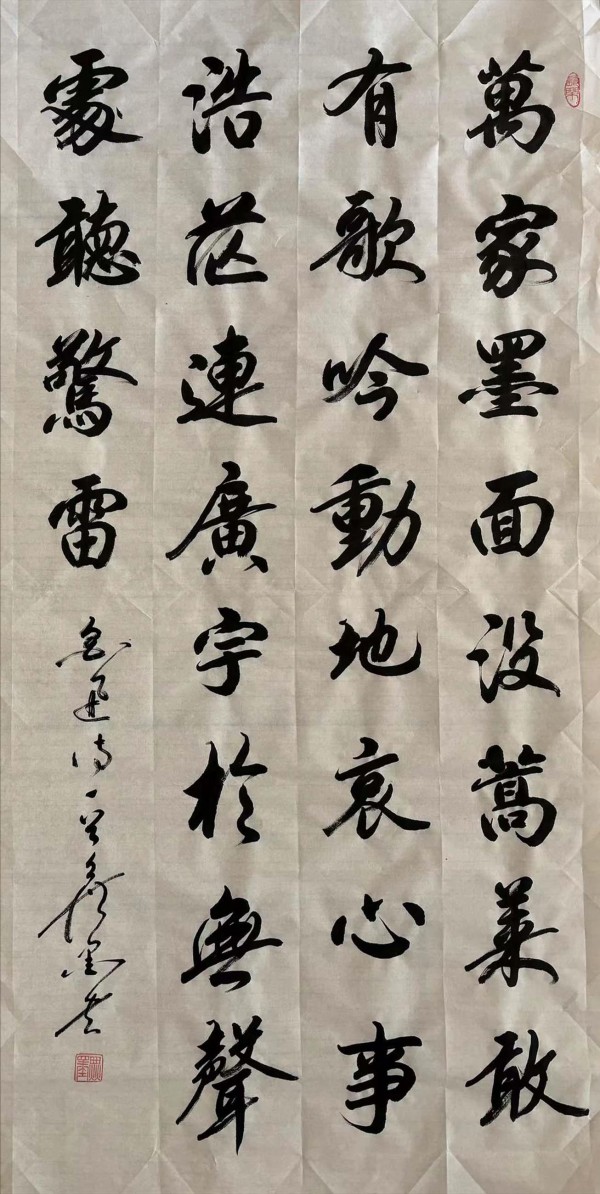 萬家墨面設蒿萊敢
有歌吟動地哀心事
浩茫連廣宇於無聲
處聽驚雷
魯迅詩一首